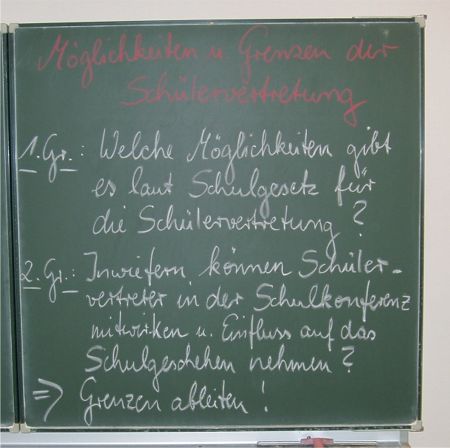 Möglichkeiten u. Grenzen der
Schülervertretung
1. Gr.: Welche Möglichkeiten gibt
es laut Schulgesetz für
die Schülervertretung?
2. Gr.: Inwiefern können Schüler-
vertreter in der Schulkonferenz
mitwirken u. Einfluss auf das
Schulgeschehen nehmen?
⇒ Grenzen ableiten!